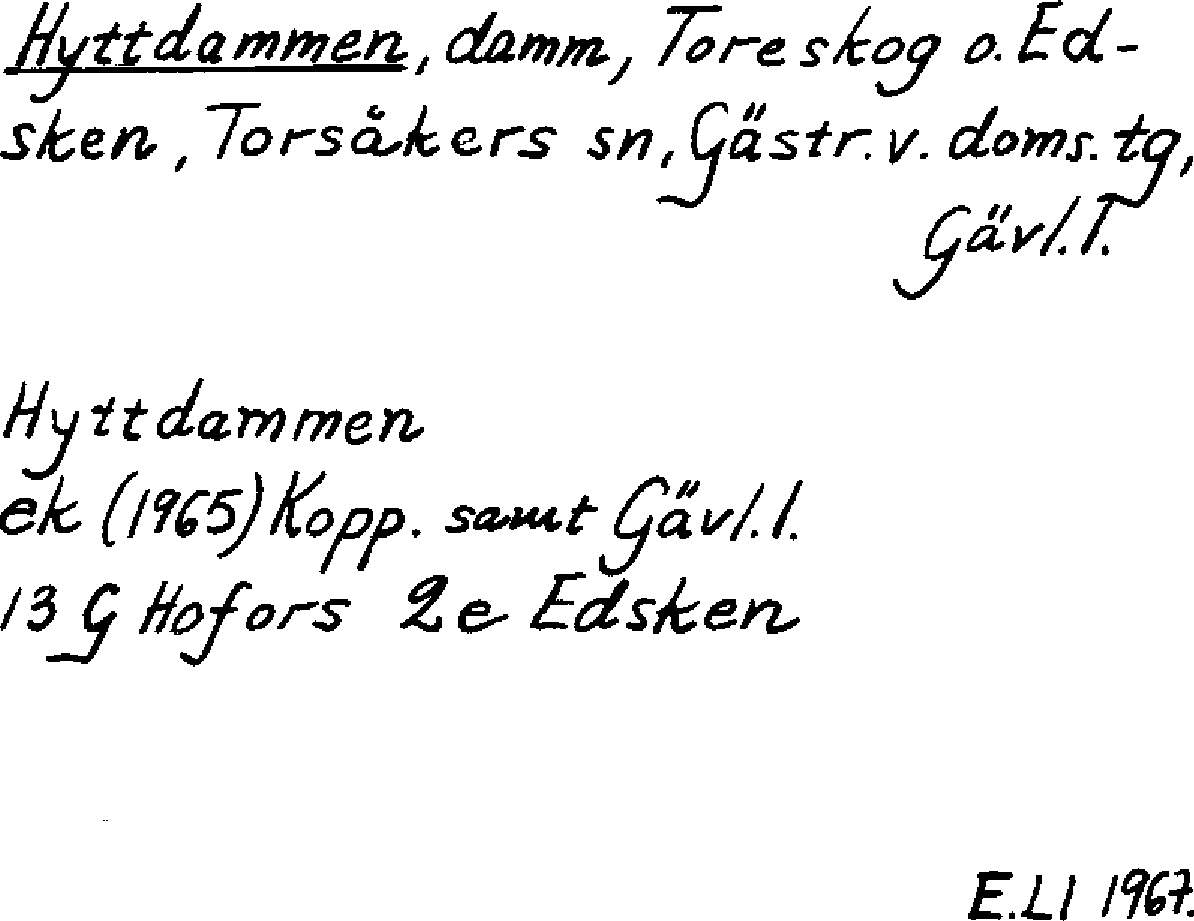 Hyttdammen, damm, Toreskog o. Ed-
sken, Torsåkers sn, Gästr. v. doms. tg,
Gävl. l.
Hyttdammen
ek (1965) Kopp. samt Gävl. l.
13 G Hofors 2e Edsken
E.Ll 1967.